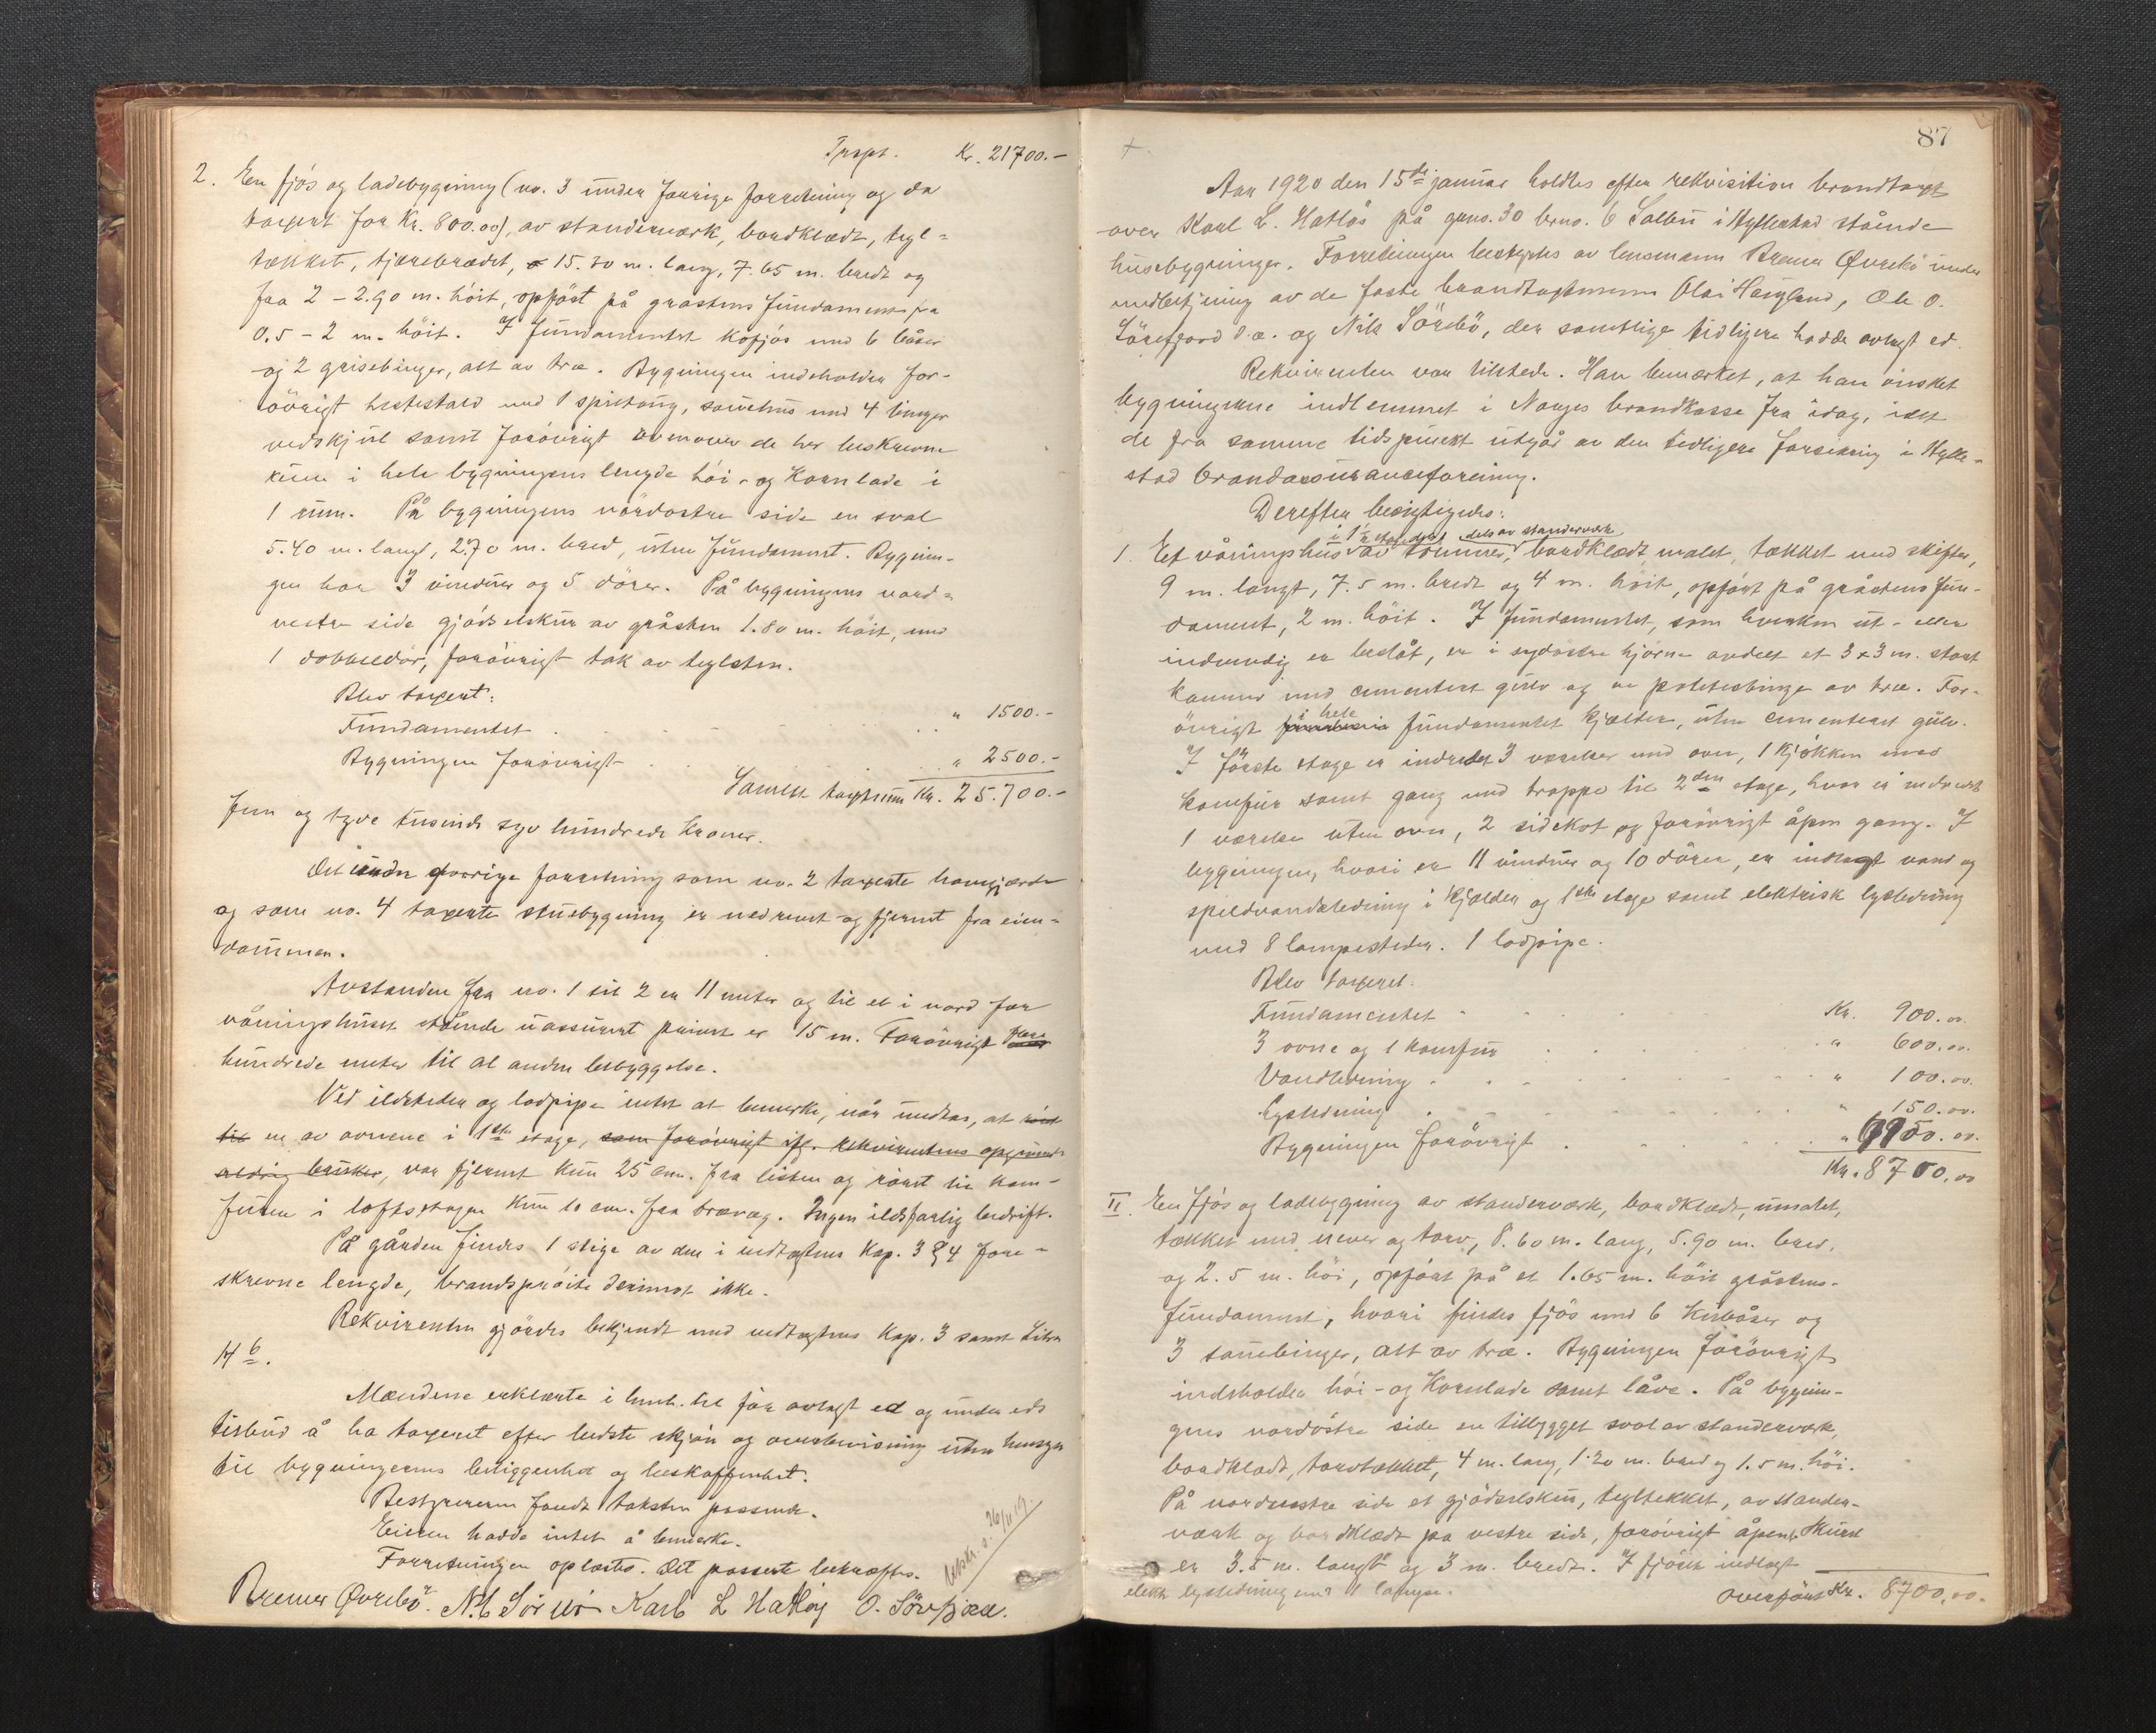 Trspt. Kr. 21700.-
2. En fjös og ladebygning (no. 3 under forrige forretning og da
taxert for Kr. 800.00), av standerværk, bordklædt, tegl-
tækket, tjærebrædet, 15.20 m. lang, 7.65 m. bredt og
fra 2 - 2.90 m. höit, opfört på gråstens fundament fra
0.5 - 2 m. höit. I fundamentet kofjös med 6 båser
og 2 grisebinger, alt av træ. Bygningen indeholder for-
övrigt hestestald med 1 spiltaug, sauehus med 4 binger
vedskjul samt forövrigt ovenover de her beskrevne
rum i hele bygningens lengde höi- og Kornlade i
1 rum. På bygningens nordöstre side en sval
5.40 m. lang, 2.70 m. bred, uten fundament. Bygnin-
gen har 3 vinduer og 5 dörer. På bygningens nord-
vestre side gjödselskur av gråsten 1.80 m. höit, med
1 dobbeldör, forövrigt tak av teglsten.
Blev taxert:
Fundamentet . . . " 1500.-
Bygningen forövrigt . . . " 2500.-
Samlet taxtsum Kr. 25.700.-
fem og tyve tusinde syv hundrede Kroner.
Det under forrige forretning som no. 2 taxerte
og som no. 4 taxerte stuebygning er nedrevet og fjernet fra eien-
dommen.
Avstanden fra no. 1 til 2 er 11 meter og til et i nord for
våningshuset stående uassurert er 15 m. Forövrigt flere
hundrede meter til al anden bebyggelse.
Ved ildsteder og lodpipe intet at bemerke, når undtas, at
en av ovnene i 1ste etage, som forövrigt ifg. rekvirentens opgivende
aldrig brukes, var fjernet kun 25 cm. fra listen og röret til kom-
furen i loftsetagen kun 10 cm. fra trævæg. Ingen ildsfarlig bedrift.
På gården findes 1 stige av den i vedtægtens Kap. 3 § 4 fore-
skrevne lengde, brandspröite derimot ikke.
Rekvirenten gjördes bekjendt med vedtægtens Kap. 3 samt Litra
H b.
Mændene erklærte i henh. til för avlagt ed og under eds
tilbud å ha taxeret efter bedste skjön og overbevisning uten hensyn
til bygningernes beliggenhet og beskaffenhet.
Bestyreren fandt taksten passende.
Eieren hadde intet å bemerke.
Forretningen oplæstes. Det passerte bekræftes.
Bremer Øvrebö. Nils Sörebö Karl L Hatlöy O. Sörefjord.
87
Aar 1920 den 15de januar holdtes efter rekvisition brandtaxt
over Karl L. Hatlös på gno. 30 brno. 6 Salbu i Hyllestad stående
husebygninger. Forretningen bestyrtes av lensmann Bremer Øvrebö under
medbetjening av de faste brandtaxtmenn Olai Haugland, Ole O.
Sörefjord d.æ. og Nils Sörebö, der samtlige tidligere hadde avlagt ed.
Rekvirenten var tilstede. Han bemærket, at han önsket
bygningerne indlemmet i Norges brandkasse fra idag, idet
de fra samme tidspunkt utgår av den tidligere forsikring i Hylle-
stad brandassuranceforening.
Derefter besigtigedes:
i 1ste etage dels dels av standerværk
1. Et våningshus av tömmer, bordklædt, malet, tækket med skifter,
9 m. langt, 7.5 m. bredt og 4 m. höit, opfört på gråstens fun-
dament, 2 m. höit. I fundamentet, som hverken ut- eller
indvendig er beslåt, er i sydöstre hjörne avdelt et 3 x 3 m. stort
kammer med cementert gulv og en potetesbinge av træ. For-
i hele
övrigt fundamentet kjælder, uten cementeret gulv.
I förste etage er indredet 3 værelser med ovn, 1 kjökken med
komfur samt gang med trappe til 2den etage, hvor er indredet
1 værelse uten ovn, 2 sidekot og forövrigt åpen gang. I
bygningen, hvori er 11 vinduer og 10 dörer, er indlagt vand og
spildvandsledning i kjælder og 1ste etage samt elektrisk lysledning
med 8 lampesteder. 1 lodpipe.
Blev taxeret:
Fundamentet . . . Kr. 900.00.
3 ovne og 1 komfur . . . " 600.00.
Vandledning . . . " 100.00.
Lysledning . . . " 150.00.
Bygningen forövrigt . . . " 6950.00.
Kr. 8700.00
II. En fjös og ladebygning av standerværk, bordklædt, umalet,
tækket med never og torv, 8.60 m. lang, 5.90 m. bred,
og 2.5 m. höi, opfört på et 1.65 m. höit gråstens-
fundament, hvori findes fjös med 6 kubåser og
3 sauebinger, alt av træ. Bygningen forövrigt
indeholder höi- og Kornlade samt låve. På bygnin-
gens nordöstre side en tilbygget sval av standerværk,
bordklædt, torvtækket, 4 m. lang, 1.20 m. bred og 1.5 m. höi.
På nordvestre side et gjödselskur, tegltekket, av stander-
værk og bordklædt på vestre side, forövrigt åpent. Skuret
er 3.5 m. langt og 3 m. bredt. I fjöset indlagt
elektr. lysledning med 1 lampe.
overfört Kr. 8700.00.